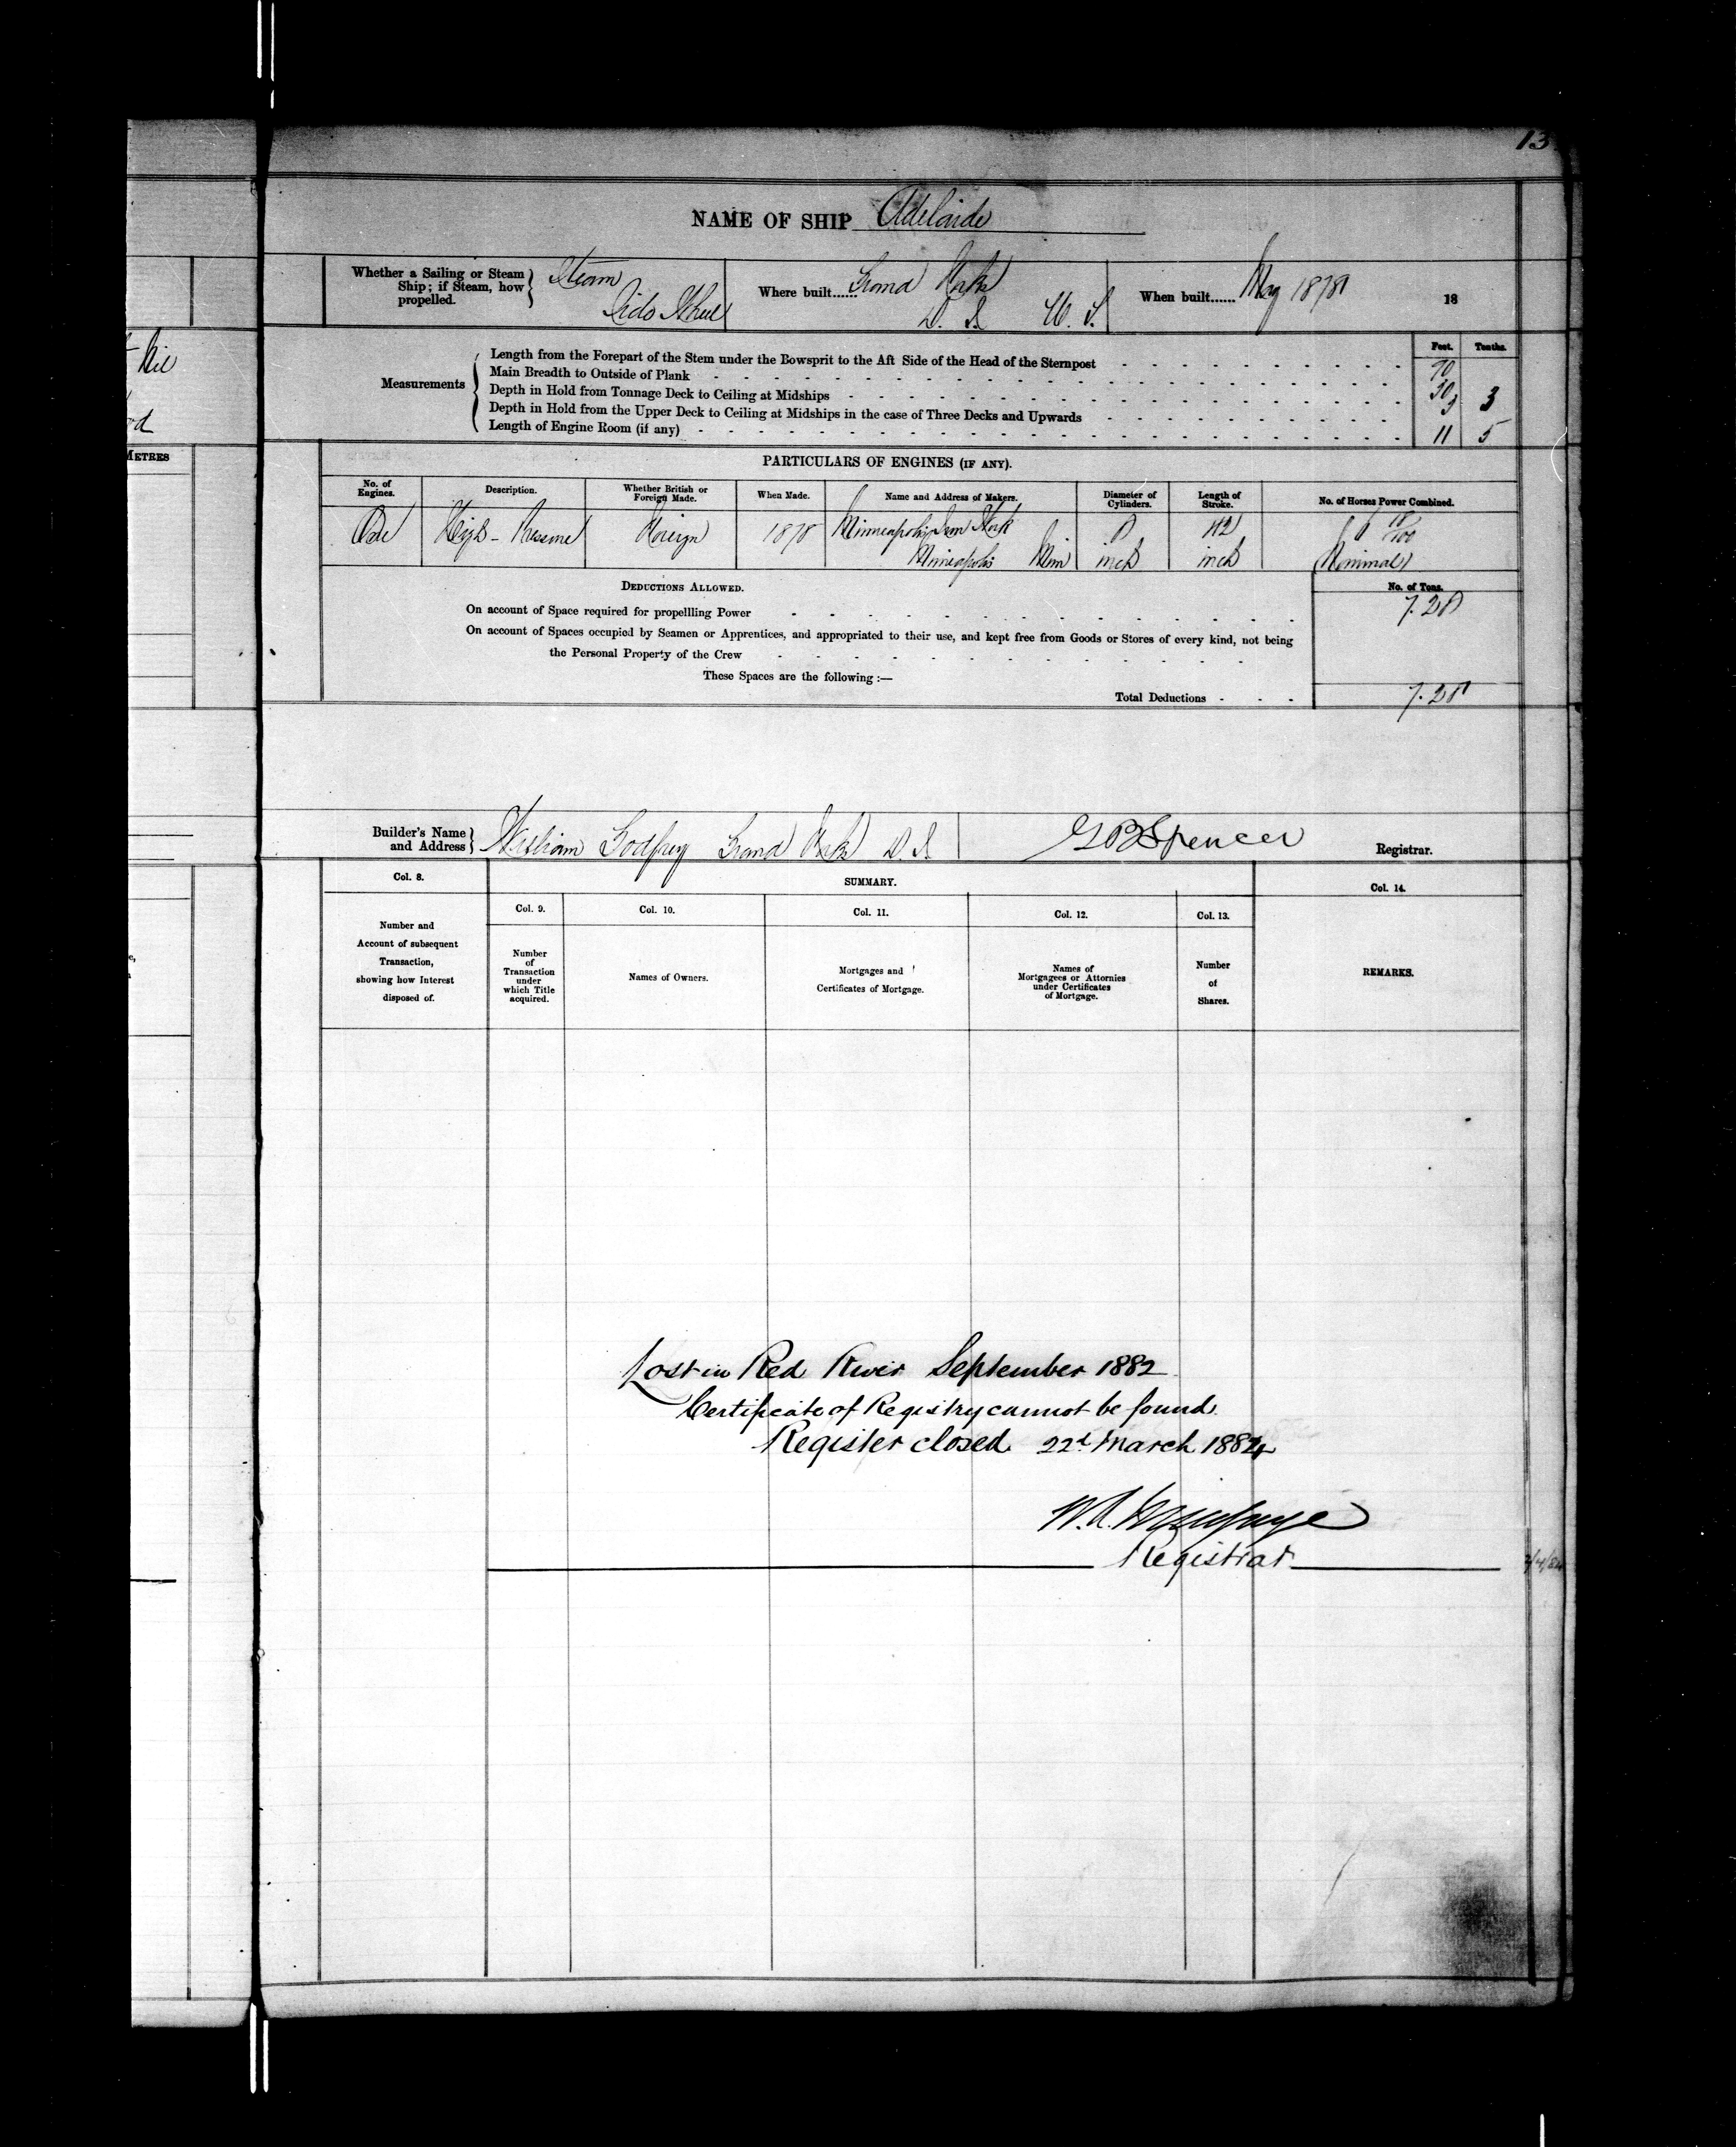 13
NAME OF SHIP Adelaide
Whether a Sailing or Steam Ship; if Steam, how propelled.
Steam
Side Wheel
Where built...... Grand Forks
D. T. U. S.
When built...... May 1878
18
Feet. Tenths.
Measurements
Length from the Forepart of the Stem under the Bowsprit to the Aft Side of the Head of the Sternpost 70
Main Breadth to Outside of Plank
Depth in Hold from Tonnage Deck to Ceiling at Midships 3 3
Depth in Hold from the Upper Deck to Ceiling at Midships in the case of Three Decks and Upwards
Length of Engine Room (if any) 11 5
PARTICULARS OF ENGINES (IF ANY).
No. of Engines. Description. Whether British or Foreign Made. When Made. Name and Address of Makers. Diameter of Cylinders. Length of Stroke. No. of Horses Power Combined.
One High-Pressure Foreign 1878 Minneapolis Iron Work 8 12
Mineapolis Min inch inch Nominal
DEDUCTIONS ALLOWED.
No. of Tons.
On account of Space required for propellling Power 7.28
On account of Spaces occupied by Seamen or Apprentices, and appropriated to their use, and kept free from Goods or Stores of every kind, not being
the Personal Property of the Crew
These Spaces are the following :—
Total Deductions 7.28
Builder's Name and Address
William Godfrey Grand Forks D.T.
Spencer
Registrar.
Col. 8.
SUMMARY.
Col. 14.
Col. 9. Col. 10. Col. 11. Col. 12. Col. 13.
Number and Account of subsequent Transaction, showing how Interest disposed of.
Number of Transaction under which Title acquired.
Names of Owners.
Mortgages and Certificates of Mortgage.
Names of Mortgagees or Attornies under Certificates of Mortgage.
Number of Shares.
REMARKS.
Lost in Red River September 1882
Certificate of Registry cannot be found
Register closed 22d March 1884
Registrar
METRES